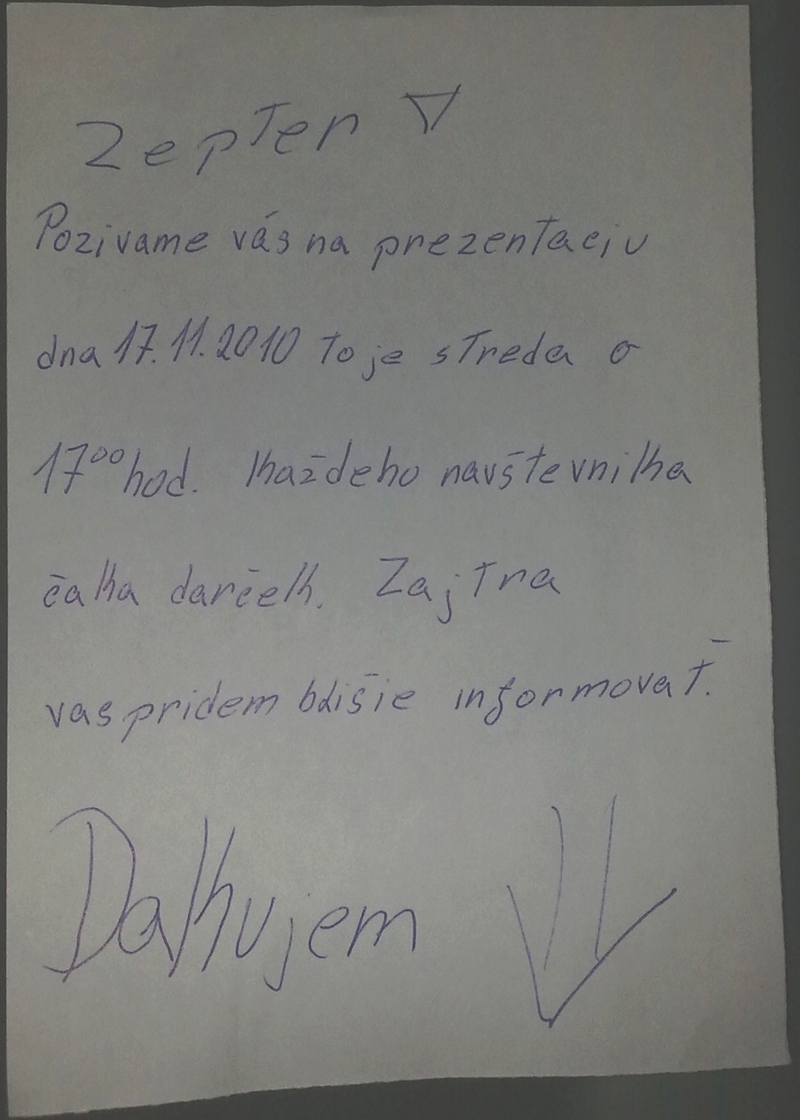 Zepter
Pozivame vás na prezentaciu
dna 17.11.2010 to je streda o
17⁰⁰ hod. každeho navštevnika
čaka darček. Zajtra
vas pridem bližšie informovať.
Dakujem